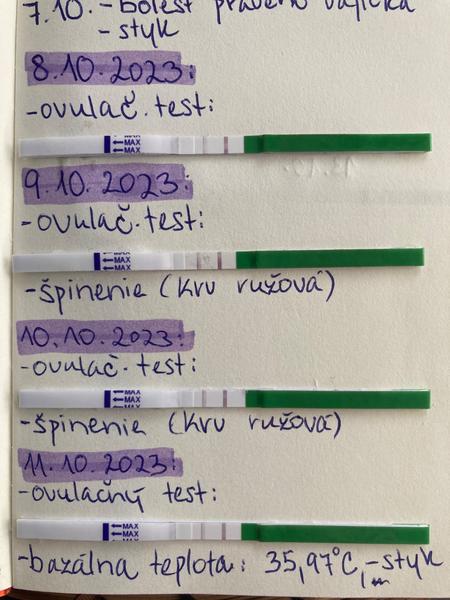 7.10. - bolesť pravého vajíčka
- styk
8.10.2023:
- ovulač. test:
MAX
←MAX
←MAX
9.10.2023:
- ovulač. test:
←MAX
←MAX
- špinenie (krv ružová)
10.10.2023:
- ovulač. test:
←MAX
←MAX
- špinenie (krv ružová)
11.10.2023:
- ovulačný test:
←MAX
←MAX
- bazálna teplota: 35,97°C, - styk